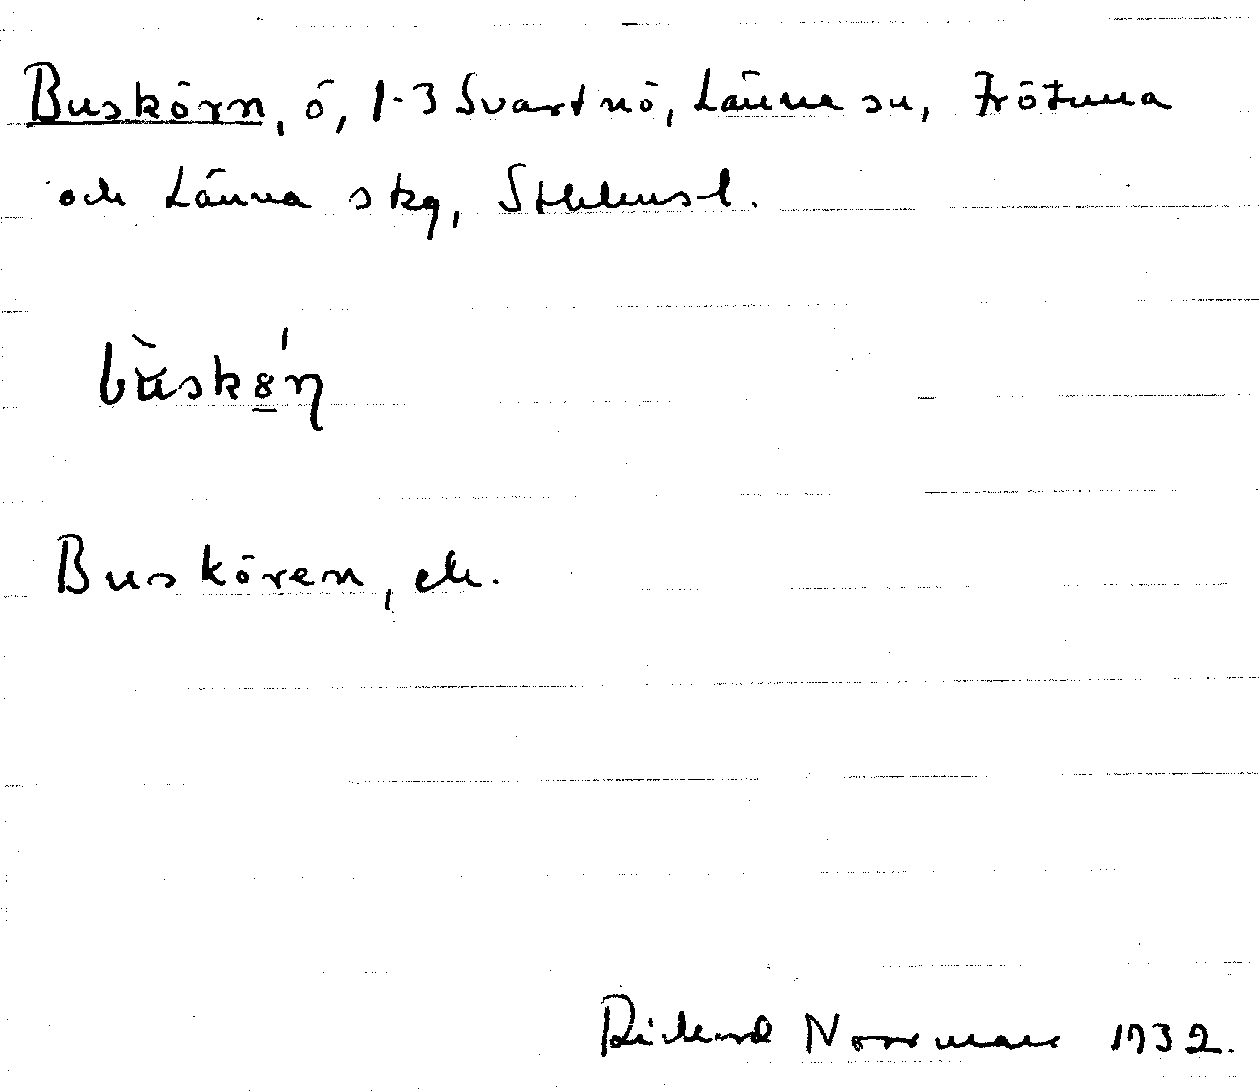 Buskörn, ö, 1-3 Svartnö, Länna sn, Frötuna
och Länna skg, Sthlmsl.
Buskören, ek.
Rickard Norrman 1932.